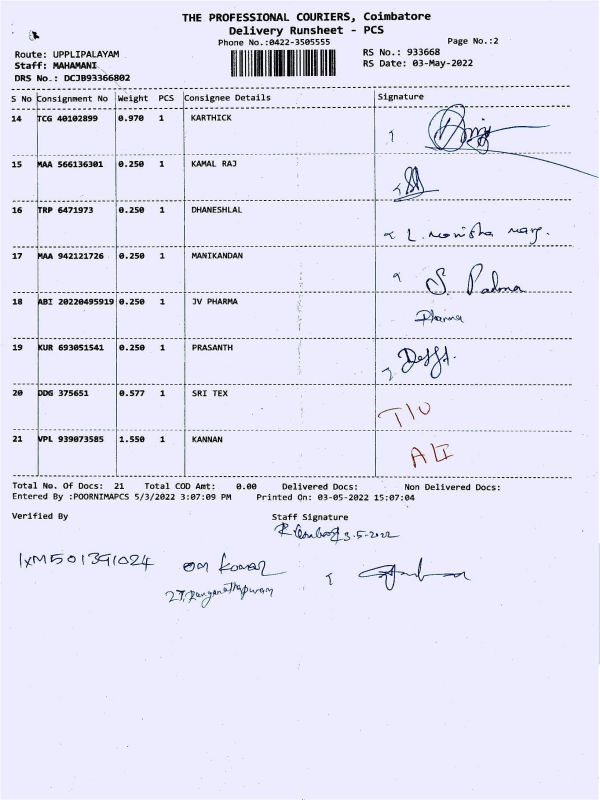 THE PROFESSIONAL COURIERS, Coimbatore
Delivery Runsheet - PCS
Phone No.:0422-3505555 Page No.:2
Route: UPPLIPALAYAM RS No.: 933668
Staff: MAHAMANI RS Date: 03-May-2022
DRS No.: DCJB93366802
S No Consignment No Weight PCS Consignee Details Signature
14 TCG 40102899 0.970 1 KARTHICK
15 MAA 566136301 0.250 1 KAMAL RAJ
16 TRP 6471973 0.250 1 DHANESHLAL
17 MAA 942121726 0.250 1 MANIKANDAN S. Padma
18 ABI 20220495919 0.250 1 JV PHARMA Pharma
19 KUR 693051541 0.250 1 PRASANTH
20 DDG 375651 0.577 1 SRI TEX T/U
21 VPL 939073585 1.550 1 KANNAN
Total No. Of Docs: 21 Total COD Amt: 0.00 Delivered Docs: Non Delivered Docs:
Entered By :POORNIMAPCS 5/3/2022 3:07:09 PM Printed On: 03-05-2022 15:07:04
Verified By Staff Signature
3-5-2022
IXM501391024